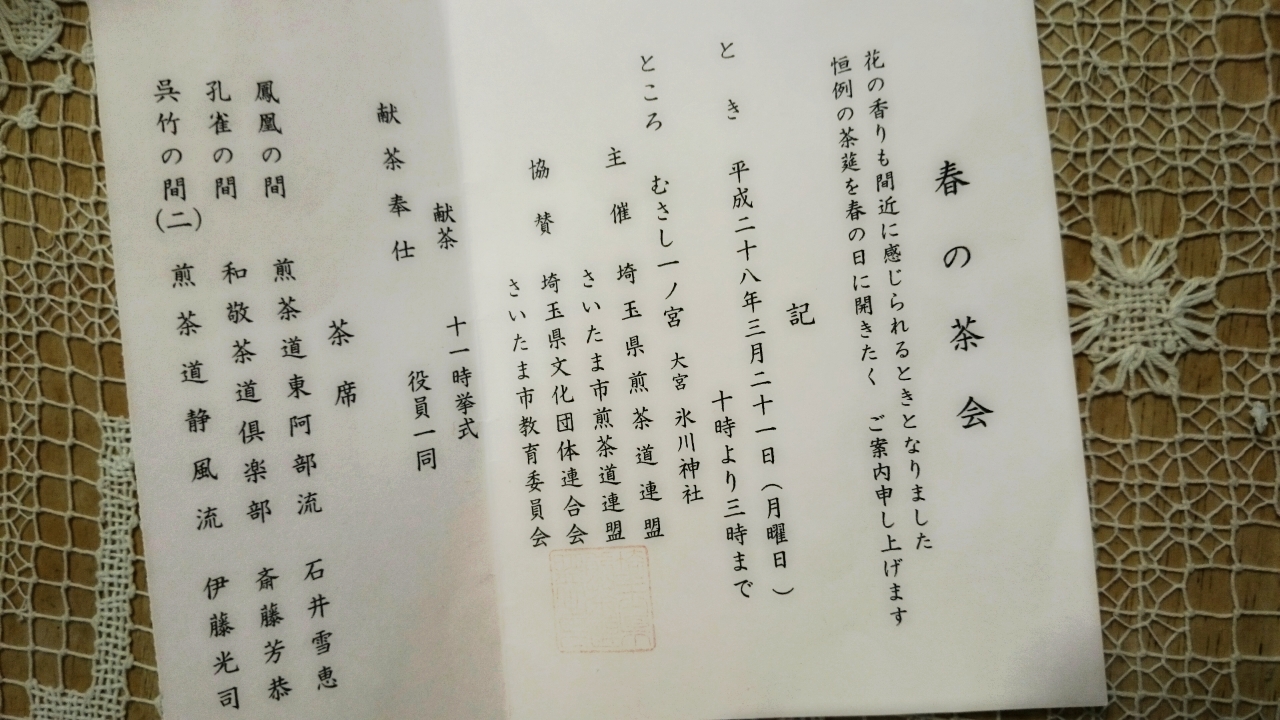 春の茶会
花の香りも間近に感じられるときとなりました
恒例の茶筵を春の日に開きたく ご案内申し上げます
記
とき 平成二十八年三月二十一日(月曜日)
十時より三時まで
ところ むさし一ノ宮 大宮 氷川神社
主催 埼玉県煎茶道連盟
さいたま市煎茶道連盟
協賛 埼玉県文化団体連合会
さいたま市教育委員会
献茶 十一時挙式
献茶奉仕 役員一同
茶席
鳳凰の間 煎茶道東阿部流 石井雪恵
孔雀の間 和敬茶道倶楽部 斎藤芳恭
呉竹の間(二) 煎茶道静風流 伊藤光司